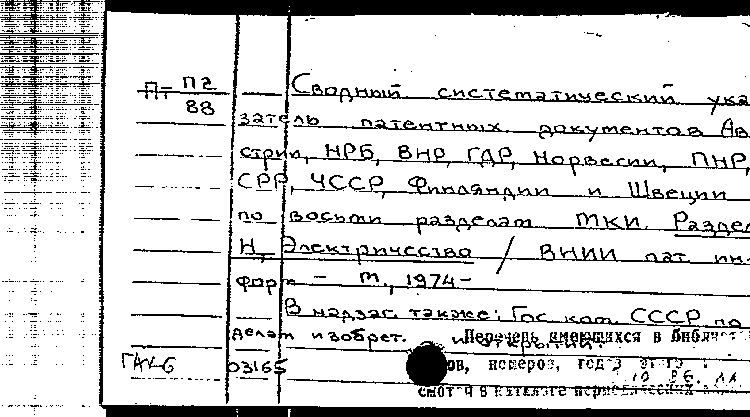 П2
88
Сводный систематический ука
затель патентных документов Ав
стрии, НРБ, ВНР, ГДР, Норвегии, ПНР,
СРР, ЧССР, Финляндии и Швеции
по восьми разделам МКИ. Раздел
Н, Электричество / ВНИИ пат. ин-
форм – М., 1974–
В надзаг. также: Гос. ком. СССР по
делам изобрет. и открытий.
Перечень имеющихся в библиот
ов, номеров, год
смот в каталоге периодических
03165